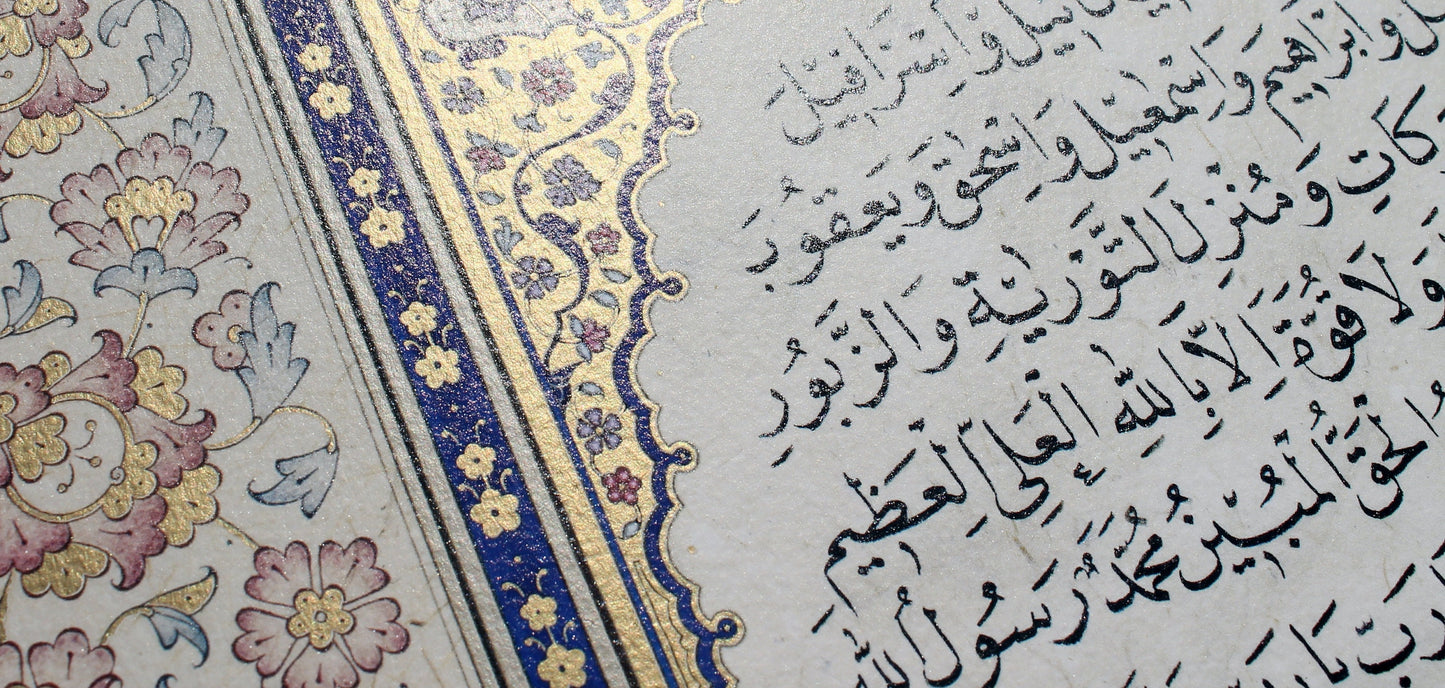 وَاِسْرَافِيْلَ
وَاِبْرَاهِيْمَ وَاِسْمٰعِيْلَ وَاِسْحٰقَ وَيَعْقُوْبَ
وَمُنْزِلَ التَّوْرٰيةِ وَالزَّبُوْرِ
وَلَا قُوَّةَ اِلَّا بِاللهِ الْعَلِىِّ الْعَظِيْمِ
الْحَقُّ الْمُبِيْنُ مُحَمَّدٌ رَسُوْلُ اللهِ
يَارَبِّ